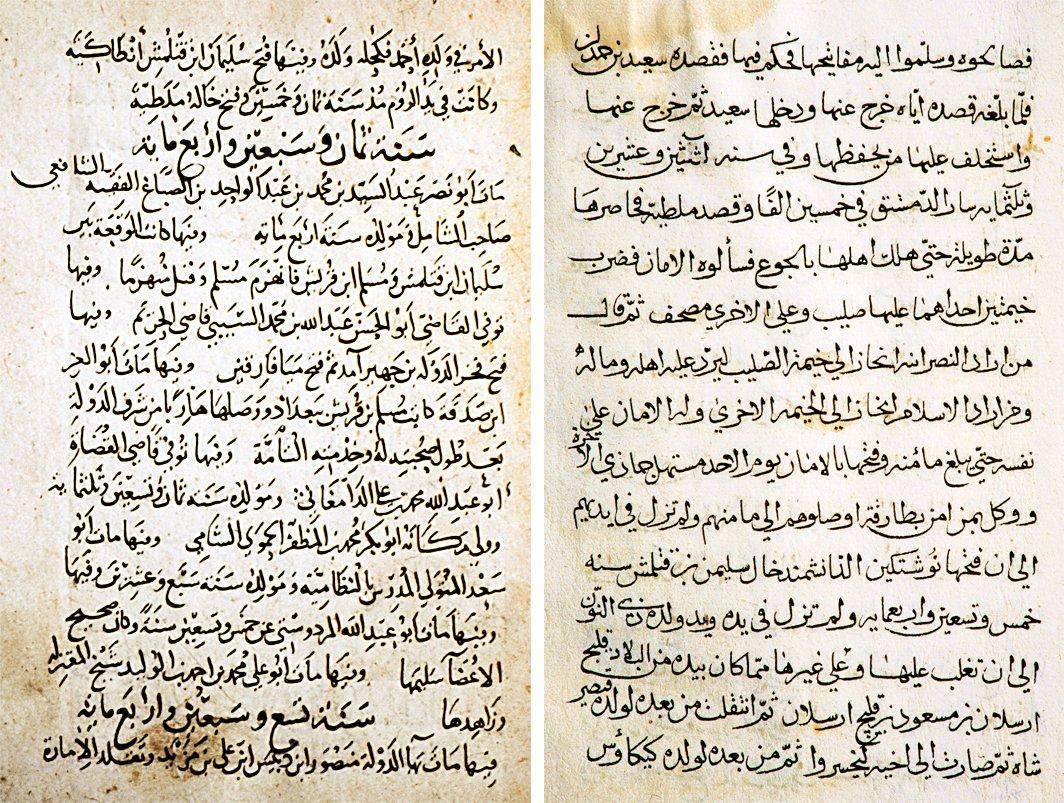 فصالحوه وسلموا اليه مفاتيحها فحكم فيها فقصده سعيد بن حمدان
فلما بلغه قصده اياه خرج عنها ودخلها سعيد ثم خرج عنها
واستخلف عليها من يحفظها وفي سنه اثنتين وعشرين
وثلثمايه سار الدمستق في خمسين الفا وقصد ملطية فحاصرها
مدة طويلة حتى هلك اهلها بالجوع فسألوه الامان فضرب
خيمتين احداهما عليها صليب وعلى الاخرى مصحف ثم قال
من اراد النصرانيه انحاز الى خيمة الصليب ليرد عليه اهله وماله
ومن اراد الاسلام انحاز الى الخيمه الاخرى وله الامان على
نفسه حتى يبلغ مامنه وفتحها بالامان يوم الاحد مستهل جمادى الاخرة
ووكل بهم من بطارقته اوصلوهم الى مامنهم ولم تزل في ايديهم
الى ان فتحها نوشتكين الدانشمند خال سليمن بن قتلمش سنه
خمس وتسعين واربعمايه ولم تزل في يده ويد ولده ذي النون
الى ان تغلب عليها وعلى غيرها مما كان بيده من البلاد قليج
ارسلان بن مسعود بن قليج ارسلان ثم انتقلت من بعده لولده قيصر
شاه ثم صارت الى اخيه كيخسروا ثم من بعده لولده كيكاؤس
الأمر في ولده أحمد فكحله ولده وفيها فتح سليمان ابن قتلمش أنطاكية
وكانت في يد الروم مذ سنة ثمان وخمسين وفتح خاله ملطية
سنة ثمان وسبعين وأربع ماية
مات أبو نصر عبد السيد بن محمد بن عبد الواحد بن الصباغ الفقيه الشافعي
صاحب الشامل ومولده سنة اربع ماية وفيها كانت الوقعة بين
سليمان ابن قتلمش ومسلم ابن قريش فانهزم مسلم وقتل منهزما وفيها
توفي القاضي أبو الحسن عبد الله بن محمد السيبي قاضي الحريم وفيها
فتح فخر الدولة بن جهير آمد ثم فتح ميافارقين وفيها مات أبو العز
ابن صدقة كاتب مسلم بن قريش ببغداد ووصلها هاربا من شرف الدولة
بعد طول صحبته له وخدمته التامة وفيها توفى قاضي القضاة
أبو عبد الله محمد بن علي الدامغاني ومولده سنة ثمان وتسعين وثلثماية
وولي مكانه ابو بكر محمد بن المظفر الحموي الشامي وفيها مات أبو
سعد المتولي المدرس بالنظامية ومولده سنة سبع وعشرين وفيها
وفيها مات ابو عبد الله المردوستي عن خمس وتسعين سنة وكان صحيح
الاعضا سليمها وفيها مات أبو علي محمد بن احمد بن الوليد شيخ المعتزله
وزاهدها سنة تسع وسبعين وأربع ماية
فيها مات بها الدولة منصور ابن دبيس ابن علي بن مزيد وتقلد الامارة